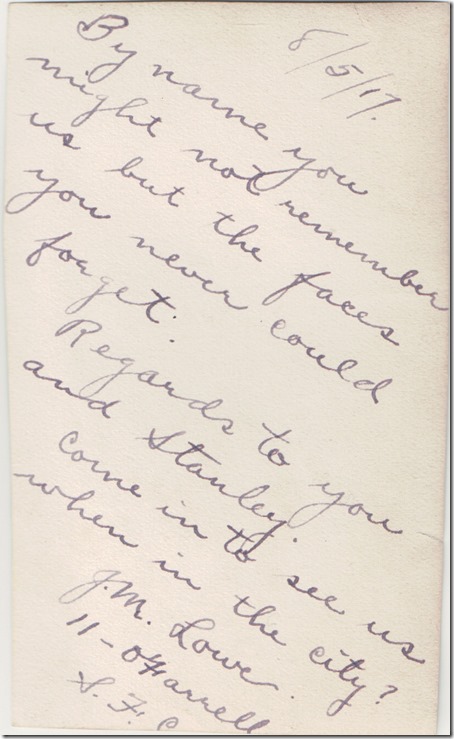 8/5/17.
By name you
might not remember
us but the faces
you never could
forget.
Regards to you
and Stanley.
Come in to see us
when in the city?
J.M. Lowe.
11-O'Farrell
S.F. C